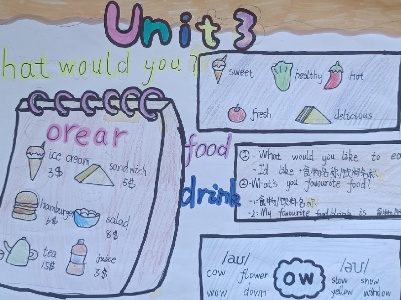 Unit 3
hat would you?
sweet
healthy
hot
fresh
delicious
orear
ice cream
3$
sandwich
6$
hamburger
salad
8$
tea
15$
juice
3$
food
drink
What would you like to ea
-I'd like +食物名称/饮料名称
What's you favourite food?
-:食物/饮料名称
-2: My favourite food/drink is
/aʊ/
cow flower
wow down
ow
/əʊ/
slow snow
yellow window